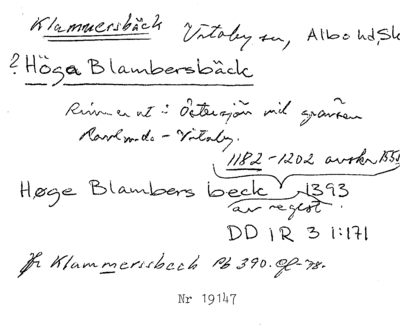 Klammersbäck Vitaby sn, Albo hd, Sk
? Höga Blambersbäck
Rinner ut i Östersjön vid gränsen
Ravlunda - Vitaby.
1182 - 1202 avskr 155
Høge Blambers beck 1393
av regest.
DD 1R 3 1:171
Jfr Klammerssbeck Pb 390. Of -78.
Nr 19147